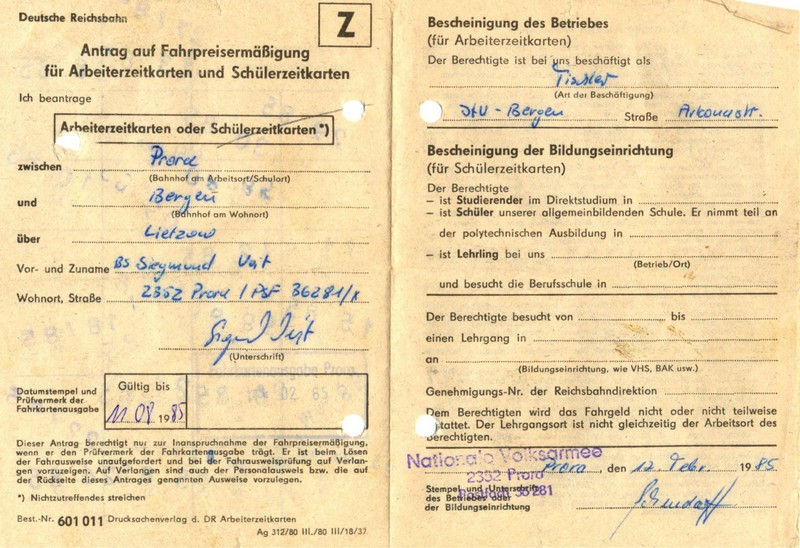 Deutsche Reichsbahn
Z
Antrag auf Fahrpreisermäßigung
für Arbeiterzeitkarten und Schülerzeitkarten
Ich beantrage
Arbeiterzeitkarten oder Schülerzeitkarten*)
zwischen Prora
(Bahnhof am Arbeitsort/Schulort)
und Bergen
(Bahnhof am Wohnort)
über Lietzow
Vor- und Zuname BS Siegmund Veit
Wohnort, Straße 2352 Prora / PSF 36281/K
(Unterschrift)
Datumstempel und
Prüfvermerk der
Fahrkartenausgabe
Gültig bis
11.08 1985
Prora
02 85
Dieser Antrag Berechtigt nur zur Inanspruchnahme der Fahrpreisermäßigung,
wenn er den Prüfvermerk der Fahrkartenausgabe trägt. Er ist beim Lösen
der Fahrausweise unaufgefordert und bei der Fahrausweisprüfung auf Verlan-
gen vorzuzeigen. Auf Verlangen sind auch der Personalausweis bzw. die auf
der Rückseite dieses Antrages genannten Ausweise vorzulegen.
*) Nichtzutreffendes streichen
Best.-Nr. 601 011 Drucksachenverlag d. DR Arbeiterzeitkarten
Ag 312/80 III./80 III/18/37
Bescheinigung des Betriebes
(für Arbeiterzeitkarten)
Der Berechtigte ist bei uns beschäftigt als
Tischler
(Art der Beschäftigung)
Bergen Straße Arkonastr.
Bescheinigung der Bildungseinrichtung
(für Schülerzeitkarten)
Der Berechtigte
– ist Studierender im Direktstudium in
– ist Schüler unserer allgemeinbildenden Schule. Er nimmt teil an
der polytechnischen Ausbildung in
– ist Lehrling bei uns
(Betrieb/Ort)
und besucht die Berufsschule in
Der Berechtigte besucht von bis
einen Lehrgang in
an
(Bildungseinrichtung, wie VHS, BAK usw.)
Genehmigungs-Nr. der Reichsbahndirektion
Dem Berechtigten wird das Fahrgeld nicht oder nicht teilweise
erstattet. Der Lehrgangsort ist nicht gleichzeitig der Arbeitsort des
Berechtigten.
Nationale Volksarmee
2352 Prora
Postfach 36281
Prora, den 12. Febr. 1985
Stempel und Unterschrift
des Betriebes oder
der Bildungseinrichtung